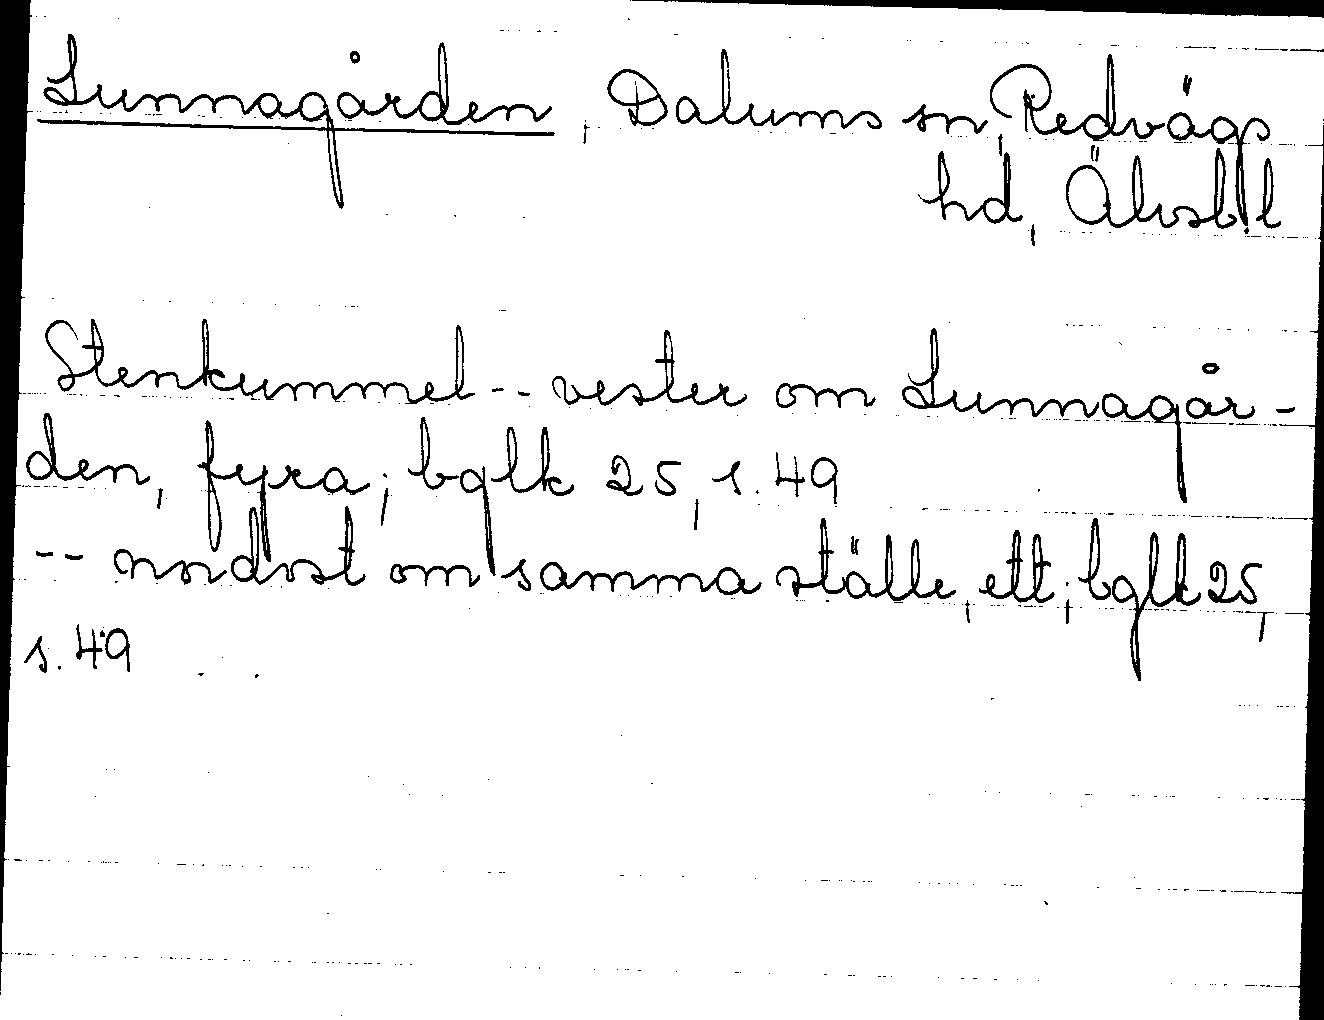 Sunnagården, Dalums sn, Redvägs
hd, Älvsb.l
Stenkummel -- vester om Sunnagår-
den, fyra; bglk 25, s. 49
-- nordost om samma ställe, ett; bglk 25,
s. 49